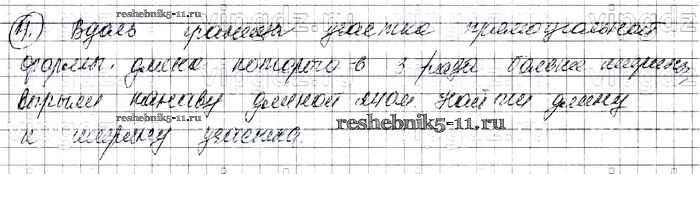 reshebnik5-11.ru
11.) Вдоль границы участка прямоугольной
формы, длина которого в 3 раза больше ширины,
вырыли канаву длиной 240м. Найти длину
reshebnik5-11.ru
и ширину участка.